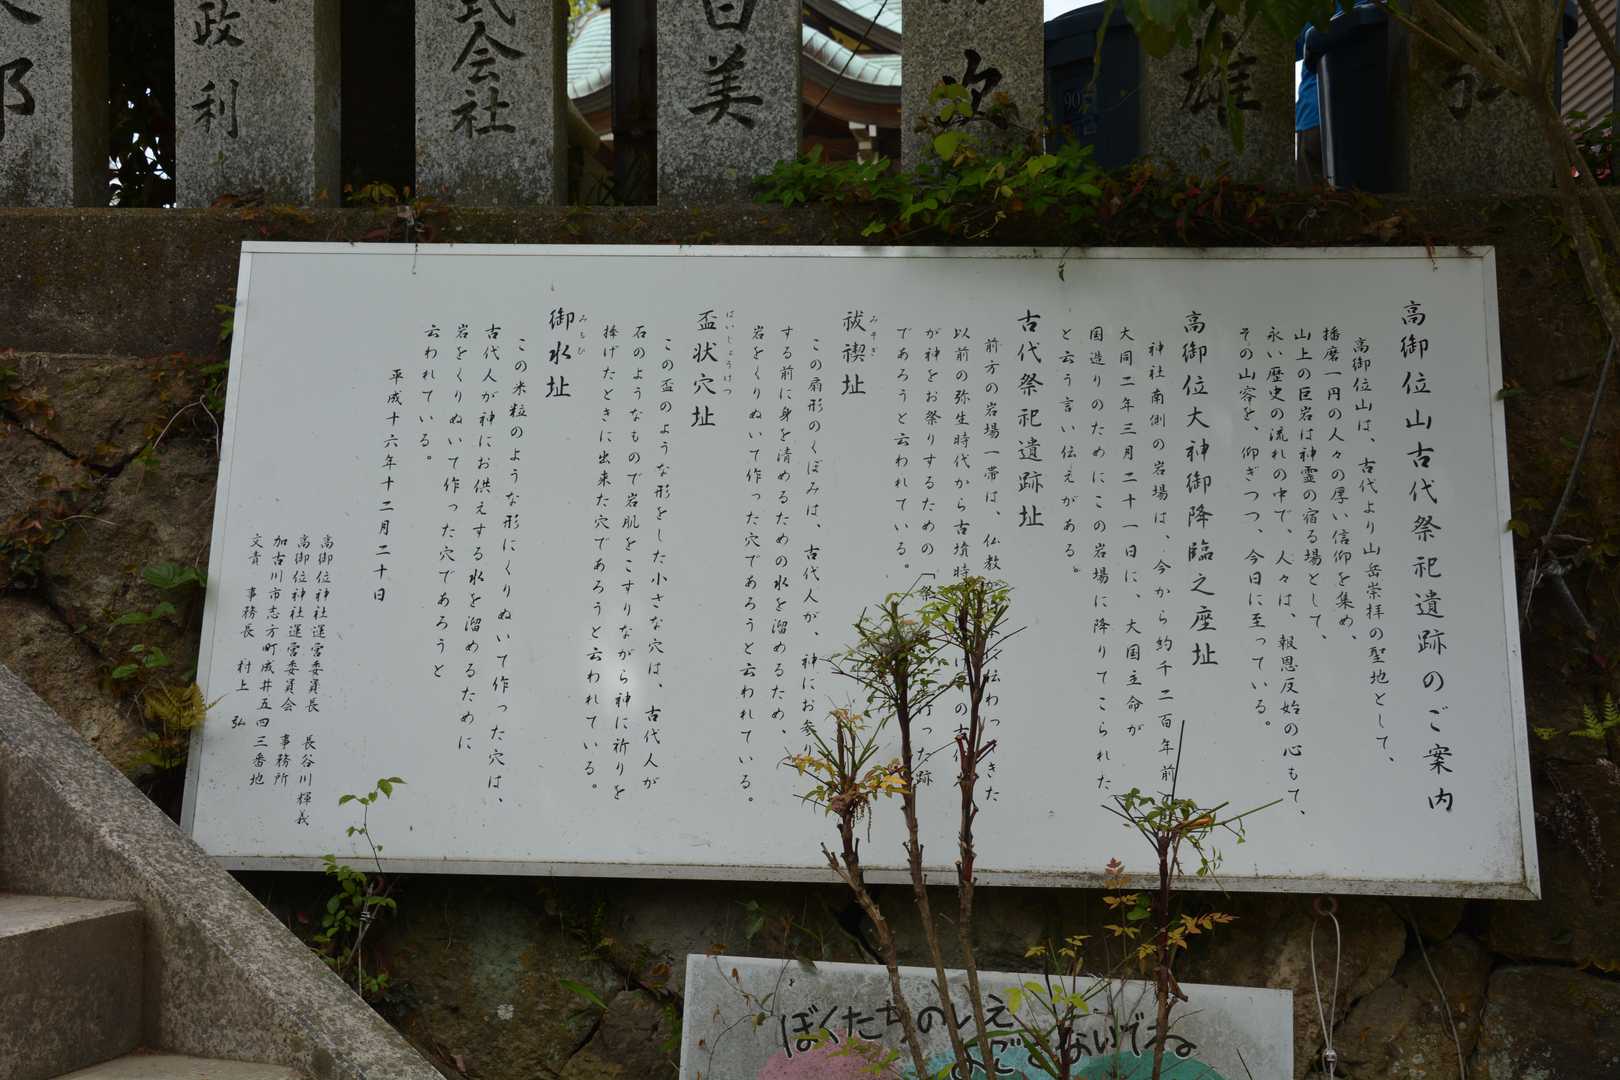 政利
式会社
日美
次
雄
弘
高御位山古代祭祀遺跡のご案内
高御位山は、古代より山岳崇拝の聖地として、
播磨一円の人々の厚い信仰を集め、
山上の巨岩は神霊の宿る場として、
永い歴史の流れの中で、人々は、報恩反始の心もて、
その山容を、仰ぎつつ、今日に至っている。
高御位大神御降臨之座址
神社南側の岩場は、今から約千二百年前
大同二年三月二十一日に、大国主命が
国造りのためにこの岩場に降りてこられた
と云う言い伝えがある。
古代祭祀遺跡址
前方の岩場一帯は、仏教が 伝わってきた
以前の弥生時代から古墳時 いけ の古代
が神をお祭りするための「祭 行った跡
であろうと云われている。
祓禊址
みそぎ
この扇形のくぼみは、古代人が、神にお参り
する前に身を清めるための水を溜めるため、
岩をくりぬいて作った穴であろうと云われている。
盃状穴址
はいじょうけつ
この盃のような形をした小さな穴は、古代人が
石のようなもので岩肌をこすりながら神に祈りを
捧げたときに出来た穴であろうと云われている。
御水址
みちひ
この米粒のような形にくりぬいて作った穴は、
古代人が神にお供えする水を溜めるために
岩をくりぬいて作った穴であろうと
云われている。
平成十六年十二月二十日
高御位神社運営委員長 長谷川 輝義
高御位神社運営委員会 事務所
加古川市志方町成井五四三番地
文責 事務長 村上 弘
90
ぼくたちのいえ
よごさないでね